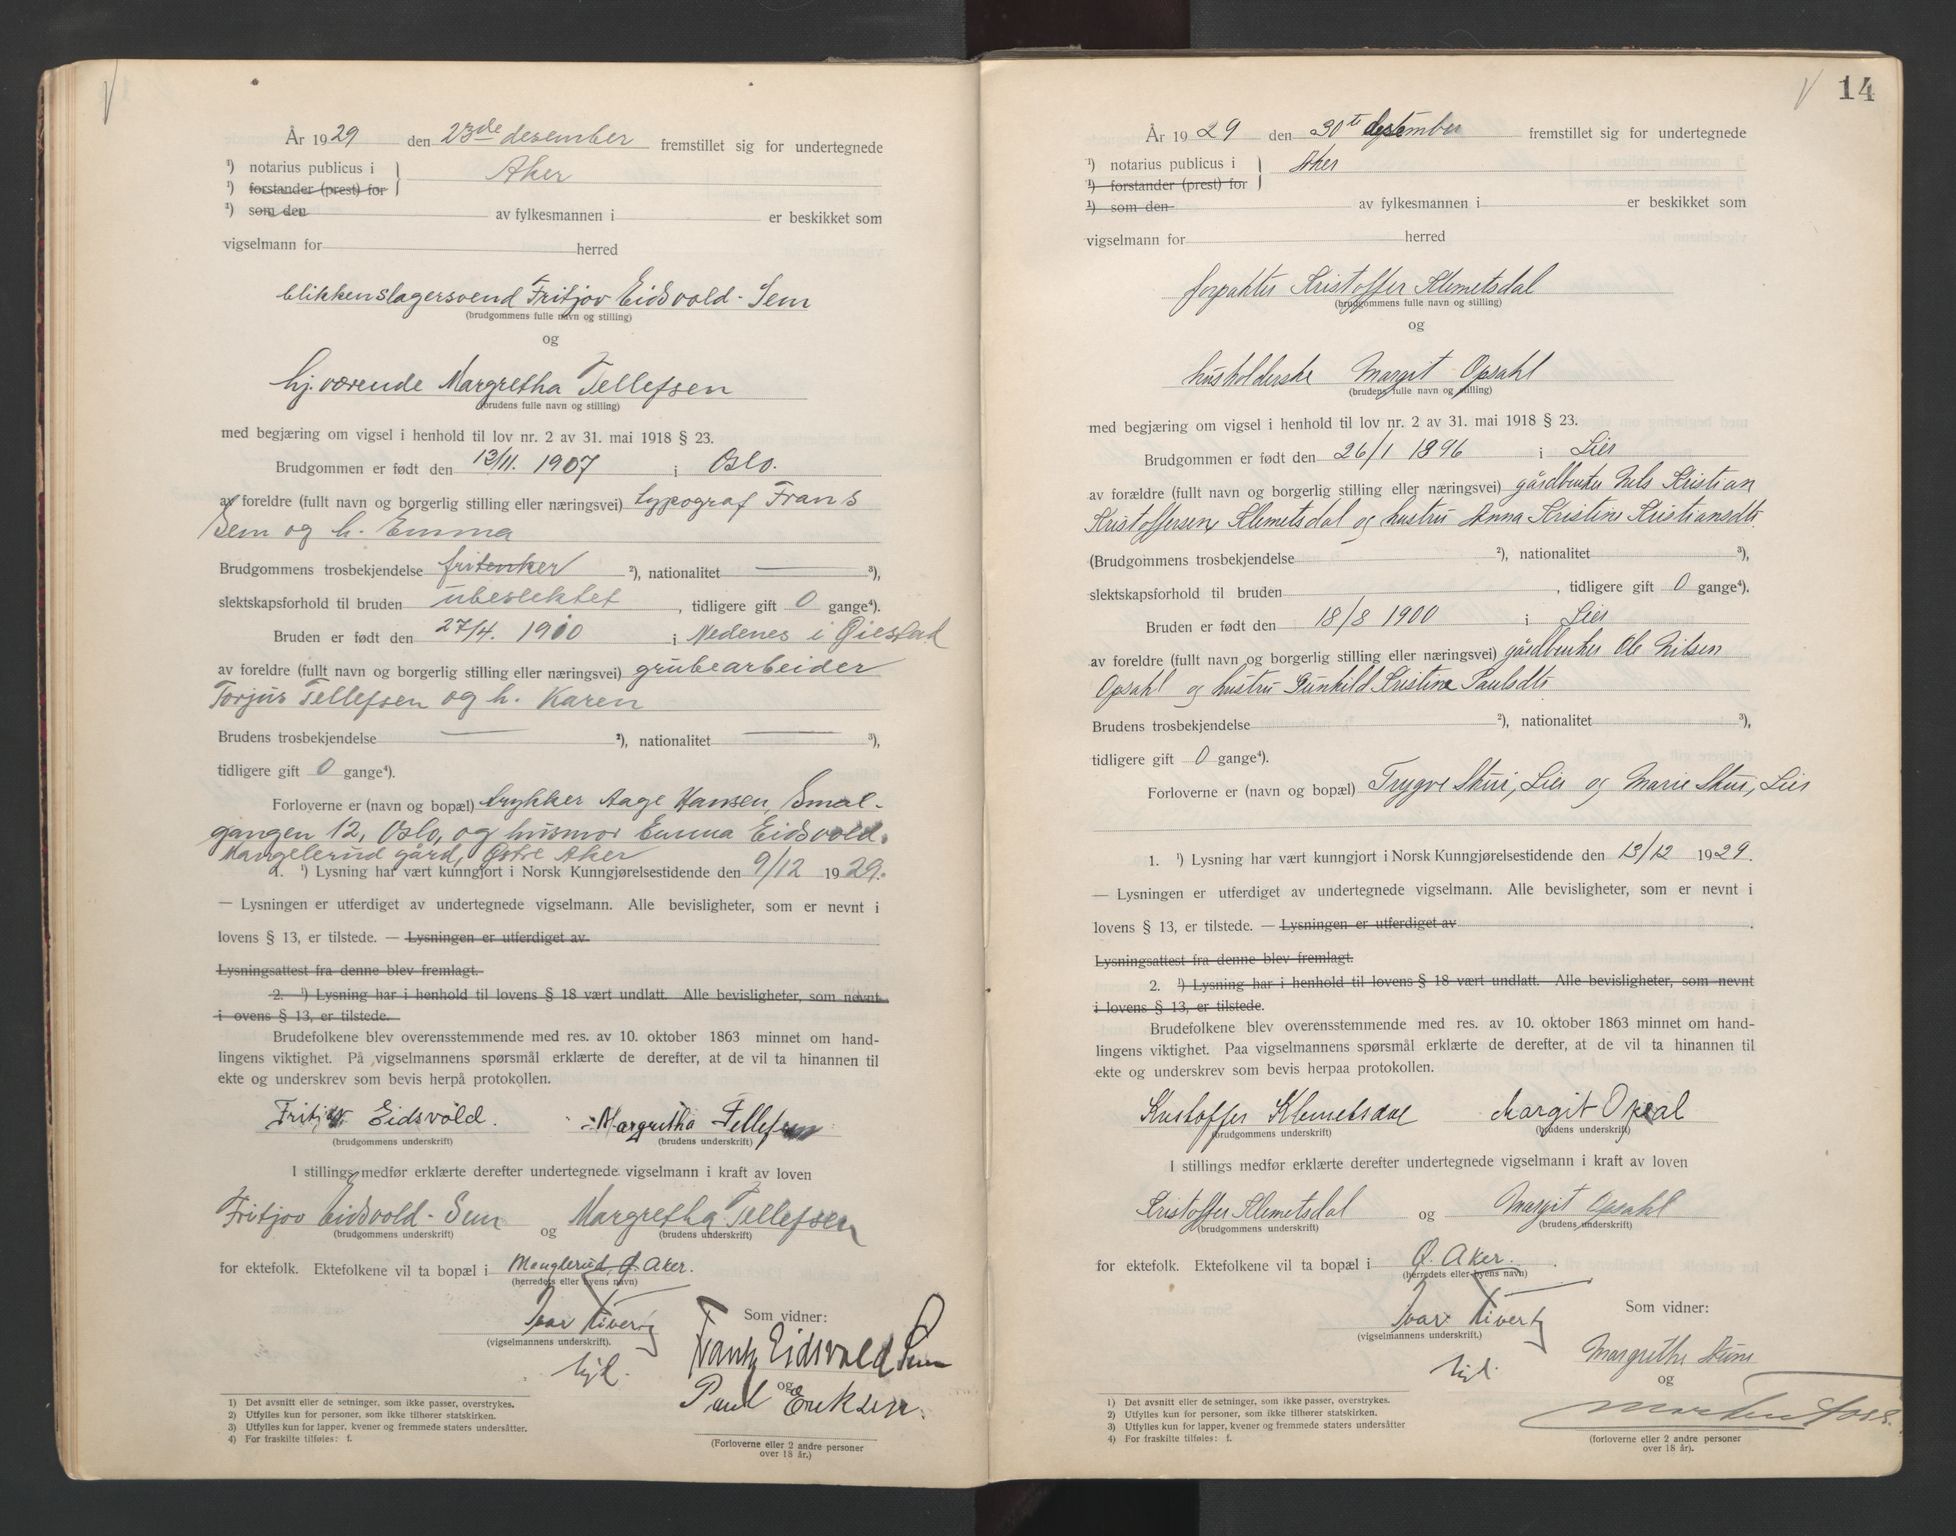 År 1929 den 23de desember fremstillet sig for undertegnede
¹) notarius publicus i } Aker
¹) forstander (prest) for
¹) som den av fylkesmannen i er beskikket som
vigselmann for herred
blikkenslagersvend Fritjov Eidsvold-Sem
(brudgommens fulle navn og stilling)
og
hj.værende Margretha Tellefsen
(brudens fulle navn og stilling)
med begjæring om vigsel i henhold til lov nr. 2 av 31. mai 1918 § 23.
Brudgommen er født den 13/11. 1907 i Oslo.
av foreldre (fullt navn og borgerlig stilling eller næringsvei) typograf Frans
Sem og h. Emma
Brudgommens trosbekjendelse fritenker ²), nationalitet — ³),
slektskapsforhold til bruden ubeslektet, tidligere gift 0 gange⁴).
Bruden er født den 27/4. 1910 i Nedenes i Øiestad
av foreldre (fullt navn og borgerlig stilling eller næringsvei) grubearbeider
Torjus Tellefsen og h. Karen
Brudens trosbekjendelse — ²), nationalitet — ³),
tidligere gift 0 gange⁴).
Forloverne er (navn og bopæl) trykker Aage Hansen, Smal-
gangen 12, Oslo, og husmor Emma Eidsvold.
Mangelerud gård, Østre Aker
1. ¹) Lysning har vært kunngjort i Norsk Kunngjørelsestidende den 9/12 1929.
— Lysningen er utferdiget av undertegnede vigselmann. Alle bevisligheter, som er nevnt i
lovens § 13, er tilstede. — Lysningen er utferdiget av
Lysningsattest fra denne blev fremlagt.
2. ¹) Lysning har i henhold til lovens § 18 vært undlatt. Alle bevisligheter, som nevnt
i ovens § 13, er tilstede.
Brudefolkene blev overensstemmende med res. av 10. oktober 1863 minnet om hand-
lingens viktighet. På vigselmannens spørsmål erklærte de derefter, at de vil ta hinannen til
ekte og underskrev som bevis herpå protokollen.
Fritjov Eidsvold. Margretha Tellefsen
(brudgommens underskrift) (brudens underskrift)
I stillings medfør erklærte derefter undertegnede vigselmann i kraft av loven
Fritjov Eidsvold-Sem og Margretha Tellefsen
(brudgommens underskrift) (brudens underskrift)
for ektefolk. Ektefolkene vil ta bopæl i Manglerud, Ø. Aker.
(herredets eller byens navn)
Som vidner:
Ivar
(vigselmannens underskrift).
Frantz Eidsvold Sem
og
Paul Eriksen.
1) Det avsnitt eller de setninger, som ikke passer, overstrykes.
2) Utfylles kun for personer, som ikke tilhører statskirken.
3) Utfylles kun for lapper, kvener og fremmede staters undersåtter.
4) For fraskilte tilføies: f.
(Forloverne eller 2 andre personer
over 18 år.)
14
År 1929 den 30te desember fremstillet sig for undertegnede
¹) notarius publicus i } Aker
¹) forstander (prest) for
¹) som den av fylkesmannen i er beskikket som
vigselmann for herred
forpakter Kristoffer Klemetsdal
(brudgommens fulle navn og stilling)
og
husholderske Margit Opsahl
(brudens fulle navn og stilling)
med begjæring om vigsel i henhold til lov nr. 2 av 31. mai 1918 § 23.
Brudgommen er født den 26/1 1896 i Lier
av forældre (fullt navn og borgerlig stilling eller næringsvei) gårdbruker Nils Kristian
Kristoffersen Klemetsdal og hustru Anna Kristine Kristiansdtr.
(Brudgommens trosbekjendelse ²), nationalitet ³),
slektskapsforhold til bruden , tidligere gift 0 gange⁴).
Bruden er født den 18/8 1900 i Lier
av foreldre (fullt navn og borgerlig stilling eller næringsvei) gårdbruker Ole Nilsen
Opsahl og hustru Gunhild Kristine Paulsdtr.
Brudens trosbekjendelse ²), nationalitet ³),
tidligere gift 0 gange⁴).
Forloverne er (navn og bopæl) Trygve Skui, Lier og Marie Skui, Lier
1. ¹) Lysning har vært kunngjort i Norsk Kunngjørelsestidende den 13/12 1929.
— Lysningen er utferdiget av undertegnede vigselmann. Alle bevisligheter, som er nevnt i
lovens § 13, er tilstede. — Lysningen er utferdiget av
Lysningsattest fra denne blev fremlagt.
2. ¹) Lysning har i henhold til lovens § 18 vært undlatt. Alle bevisligheter, som nevnt
i lovens § 13, er tilstede.
Brudefolkene blev overensstemmende med res. av 10. oktober 1863 minnet om hand-
lingens viktighet. Paa vigselmannens spørsmål erklærte de derefter, at de vil ta hinannen til
ekte og underskrev som bevis herpaa protokollen.
Kristoffer Klemetsdal Margit Opsal
(brudgommens underskrift) (brudens underskrift)
I stillings medfør erklærte derefter undertegnede vigselmann i kraft av loven
Kristoffer Klemetsdal og Margit Opsahl
(brudgommens underskrift) (brudens underskrift)
for ektefolk. Ektefolkene vil ta bopæl i Ø. Aker.
(herredets eller byens navn)
Som vidner:
Ivar
(vigselmannens underskrift.)
Margrethe
og
Morten Foss.
1) Det avsnitt eller de setninger, som ikke passer, overstrykes.
2) Utfylles kun for personer, som ikke tilhører statskirken.
3) Utfylles kun for lapper, kvener og fremmede staters undersåtter
4) For fraskilte tilføies: f.
(forloverne eller 2 andre personer
over 18 år).